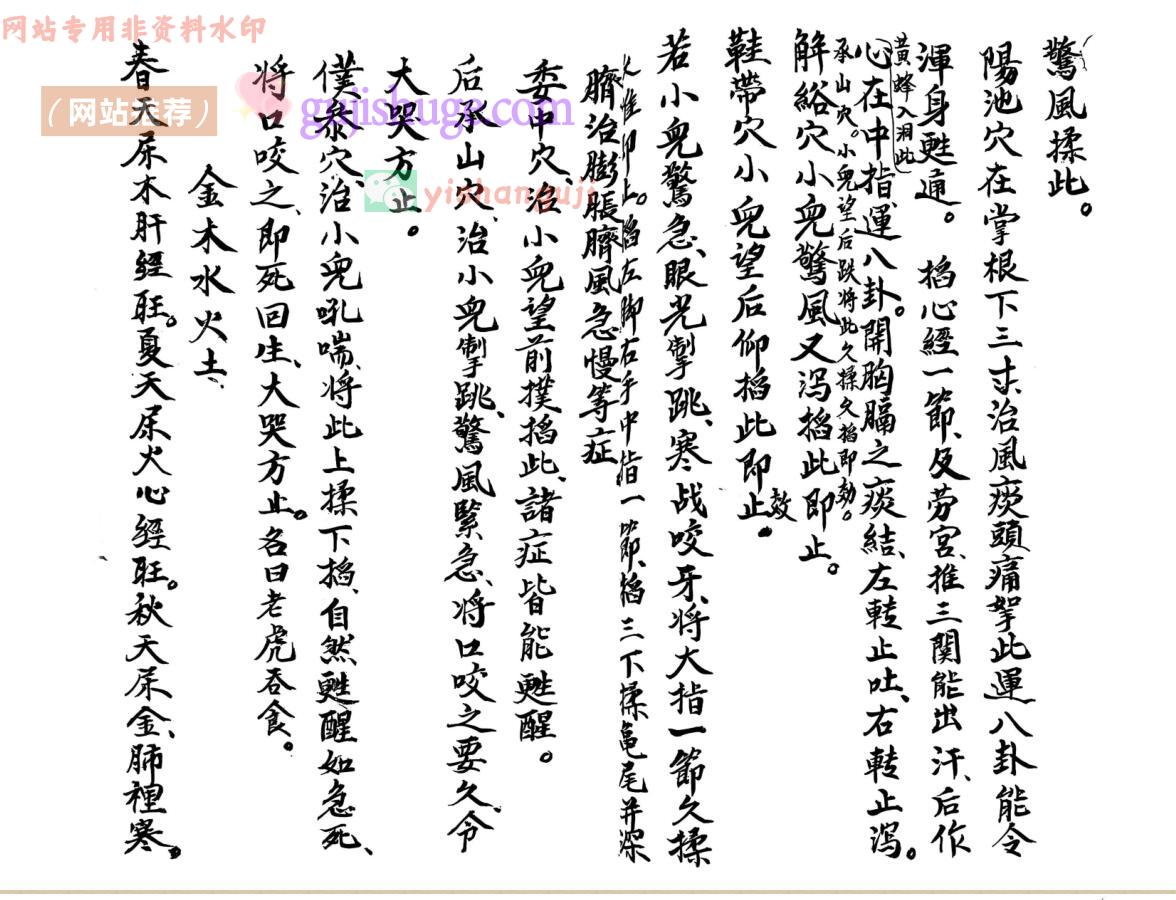 驚風揉此。
陽池穴在掌根下三寸、治風痰頭痛拏此運八卦能令
渾身甦通。掐心經一節、及劳宮、推三関能出汗、后作
黃蜂入洞此
心在中指運八卦。開胸膈之痰結、左轉止吐、右轉止瀉。
承山穴。小兒望后跌将此久揉久掐即効。
解谿穴小兒驚風又瀉掐此即止。
效
鞋帶穴小兒望后仰掐此即止。
若小兒驚急、眼光掣跳、寒战咬牙、将大指一節久揉
久推即上。掐左脚右手中指一節、掐三下揉亀尾并深
臍治膨脹臍風急慢等症
委中穴、治小兒望前撲掐此、諸症皆能甦醒。
后承山穴、治小兒掣跳、驚風緊急、将口咬之要久、令
大哭方止。
僕叅穴、治小兒吼喘、将此上揉下掐、自然甦醒如急死、
将口咬之、即死回生、大哭方止。名曰老虎吞食。
金木水火土
春天尿木肝經旺。夏天尿火心經旺。秋天尿金、肺裡寒。
网站专用非资料水印
（网站推荐）
gujishuge.com
yishanguji